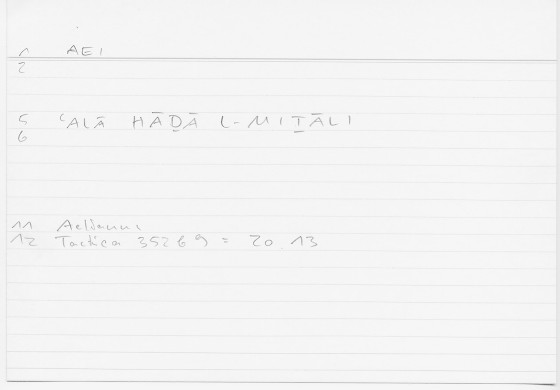 1 AEI
2
5 ʿALĀ HĀḎĀ L-MIṮĀLI
6
11 Aelianus
12 Tactica 352 69 = 20.13